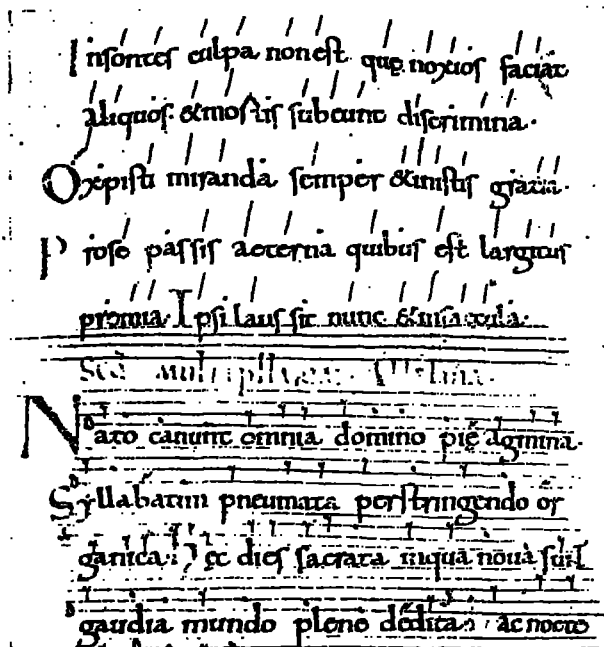 Insontes culpa non est quę noxios faciat
aliquos. & mortis subeunt discrimina.
O xp̄isti miranda semper & iustis gratia.
Pro se passis aeterna quibus est largitus
premia. Ipsi laus sit nunc & in saecula.
Nato canunt omnia domino pię agmina.
Syllabatim pneumata perstringendo or
ganica. Hęc dies sacrata in qua nova sunt
gaudia mundo plene dedita. ac nocte